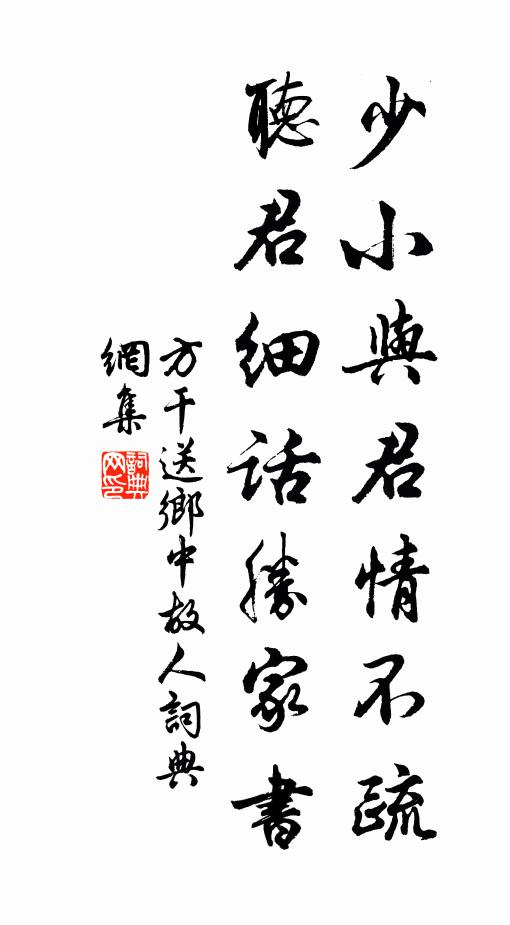 少小與君情不疏
聽君細話勝家書
方干送鄉中故人詞典
網集
詞典
网印